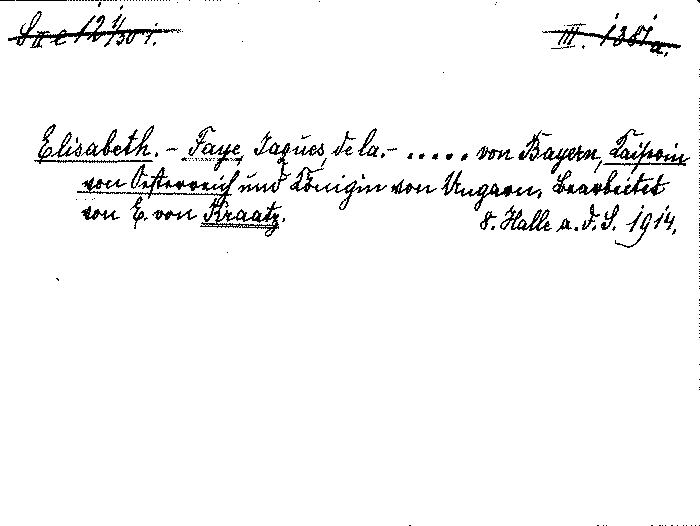 S II e 12 1/30 i. III. 1381 a.
Elisabeth. - Faye, Jaques, de la. - ..... von Bayern, Kaiserin
von Oesterreich und Königin von Ungarn. Bearbeitet
von E. von Kraatz. 8. Halle a. d. S. 1914.